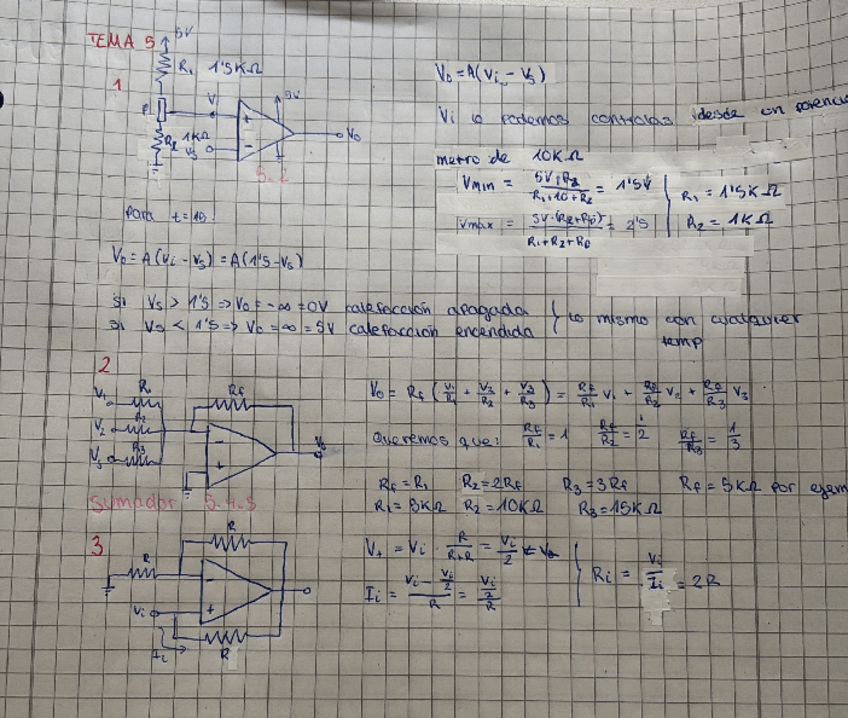 TEMA 5
5V
R1 1'5KΩ
1
P
Vi
R2 1KΩ
Vs
+
-
5V
Vo
5.2
Vo = A(Vi - Vs)
Vi lo podemos controlar desde un potencio
metro de 10KΩ
Vmin = 5V·R2 / R1+10+R2 = 1'5V
R1 = 1'5KΩ
Vmax = 5V·(R2+Rp) / R1+R2+Rp = 2'5
R2 = 1KΩ
Para t = 19:
Vo = A(Vi - Vs) = A(1'5 - Vs)
Si Vs > 1'5 => Vo = -∞ = 0V calefacción apagada
Si Vs < 1'5 => Vo = ∞ = 5V calefacción encendida
lo mismo con cualquier
temp
2
V1 R1
V2 R2
V3 R3
Rf
-
+
Vo
Sumador 5.4.5
Vo = Rf (V1/R1 + V2/R2 + V3/R3) = Rf/R1 V1 + Rf/R2 V2 + Rf/R3 V3
Queremos que: Rf/R1 = 1 Rf/R2 = 1/2 Rf/R3 = 1/3
Rf = R1 R2 = 2Rf R3 = 3Rf Rf = 5KΩ por ejem
R1 = 5KΩ R2 = 10KΩ R3 = 15KΩ
3
R
R
-
+
Vi
Ii
R
V+ = Vi · R/R+R = Vi/2
Ii = Vi - Vi/2 / R = Vi/2 / R
Ri = Vi/Ii = 2R